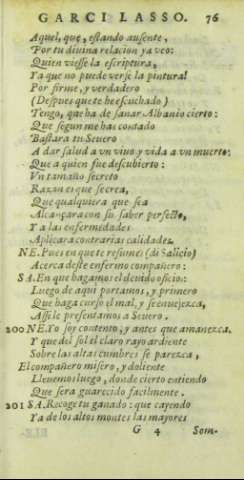 GARCI LASSO. 76
Aquel, que, estando ausente,
Por tu diuina relacion ya veo:
Quien viesse la escriptura,
Ya que no puede verse la pintura!
Por firme, y verdadero
(Despues que te he escuchado)
Tengo, que ha de sanar Albanio cierto:
Que segun me has contado
Bastara tu Seuero
A dar salud a vn viuo y vida a vn muerto:
Que a quien fue descubierto:
Vn tamaño secreto
Razon es que se crea,
Que qualquiera que sea
Alcançara con su saber perfecto,
Y a las enfermedades
Aplicara contrarias calidades.
NE. Pues en que te resumes (di Salicio)
Acerca deste enfermo compañero:
SA. En que hagamos el deuido oficio:
Luego de aqui partamos, y primero
Que haga curso el mal, y se enuejezca,
Assi le presentamos a Seuero.
200 NE. Yo soy contento, y antes que amanezca.
Y que del sol el claro rayo ardiente
Sobre las altas cumbres se parezca,
El compañero misero, y doliente
Lleuemos luego, donde cierto entiendo
Que sera guarecido facilmente.
201 SA. Recoge tu ganado: que cayendo
Ya de los altos montes las mayores
G 4 Som-